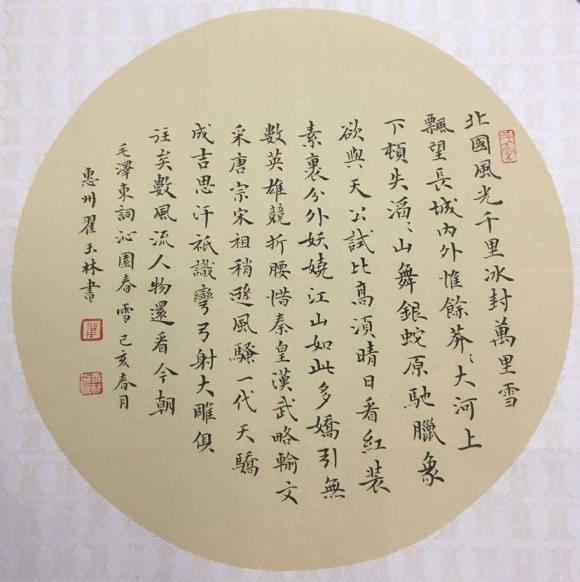 北國風光千里冰封萬里雪
飄望長城內外惟餘莽〻大河上
下頓失滔〻山舞銀蛇原馳臘象
欲與天公試比高須晴日看紅裝
素裹分外妖嬈江山如此多嬌引無
數英雄競折腰惜秦皇漢武略輸文
采唐宗宋祖稍遜風騷一代天驕
成吉思汗祇識彎弓射大雕俱
往矣數風流人物還看今朝
毛澤東詞沁園春 雪 己亥春月
惠州翟玉林書